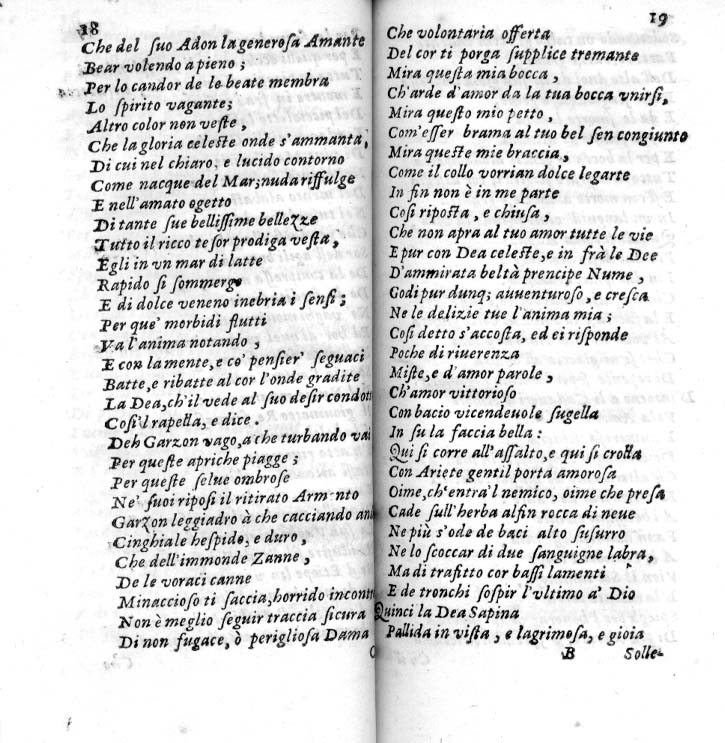 18
Che del ſuo Adon la generoſa Amante
Bear volendo a pieno ;
Per lo candor de le beate membra
Lo ſpirito vagante;
Altro color non veſte ,
Che la gloria celeſte onde s'ammanta,
Di cui nel chiaro, e lucido contorno
Come nacque del Mar; nuda riſſulge
E nell'amato ogetto
Di tante ſue belliſſime bellezze
Tutto il ricco teſor prodiga veſta ,
Egli in vn mar di latte
Rapido ſi ſommerge
E di dolce veneno inebria i ſenſi ;
Per que' morbidi flutti
Va l'anima notando ,
E con la mente, e co' penſier' ſeguaci
Batte, e ribatte al cor l'onde gradite
La Dea, ch'il vede al ſuo deſir condott
Coſi'l rapella, e dice .
Deh Garzon vago, a che turbando vai
Per queſte apriche piagge ;
Per queſte ſelue ombroſe
Ne' ſuoi ripoſi il ritirato Armento
Garzon leggiadro à che cacciando an
Cinghiale heſpido, e duro ,
Che dell'immonde Zanne ,
De le voraci canne
Minaccioſo ti faccia, horrido incont
Non è meglio ſeguir traccia ſicura
Di non fugace, ò periglioſa Dama
19
Che volontaria offerta
Del cor ti porga ſupplice tremante
Mira queſta mia bocca ,
Ch'arde d'amor da la tua bocca vnirſi,
Mira queſto mio petto ,
Com'eſſer brama al tuo bel ſen congiunto
Mira queſte mie braccia ,
Come il collo vorrian dolce legarte
In fin non è in me parte
Coſi ripoſta , e chiuſa ,
Che non apra al tuo amor tutte le vie
E pur con Dea celeſte, e in frà le Dee
D'ammirata beltà prencipe Nume ,
Godi pur dunq; auuenturoſo , e creſca
Ne le delizie tue l'anima mia ;
Coſi detto s'accoſta, ed ei riſponde
Poche di riuerenza
Miſte, e d'amor parole ,
Ch'amor vittorioſo
Con bacio vicendeuole ſugella
In ſu la faccia bella :
Qui ſi corre all'aſſalto, e qui ſi crolla
Con Ariete gentil porta amoroſa
Oime, ch'entra'l nemico, oime che preſa
Cade ſull'herba alfin rocca di neue
Ne più s'ode de baci alto ſuſurro
Ne lo ſcoccar di due ſanguigne labra ,
Ma di trafitto cor baſſi lamenti
E de tronchi ſoſpir l'vltimo a' Dio
Quinci la Dea Sapina
Pallida in viſta , e lagrimoſa, e gioia
B Solle-